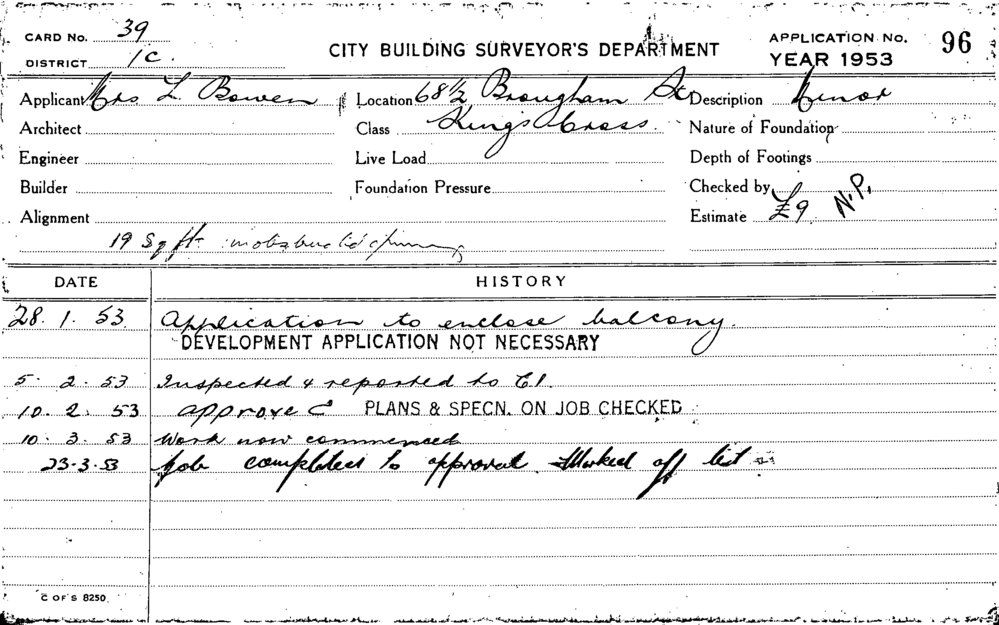 CARD No. 39
DISTRICT 1C.
CITY BUILDING SURVEYOR'S DEPARTMENT
APPLICATION No. 96
YEAR 1953
Applicant Mrs L Bowen Location 68½ Brougham St Description Minor
Architect Class Kings Cross. Nature of Foundation
Engineer Live Load Depth of Footings
Builder Foundation Pressure Checked by N.P.
Alignment Estimate £9
19 Sq ft
DATE HISTORY
28. 1. 53 Application to enclose balcony.
DEVELOPMENT APPLICATION NOT NECESSARY
5. 2. 53 Inspected & reported to
10. 2. 53 approve PLANS & SPECN. ON JOB CHECKED
10. 3. 53 Work now commenced
23-3-53 Job completed to approval. Marked off list
C OF S 8250